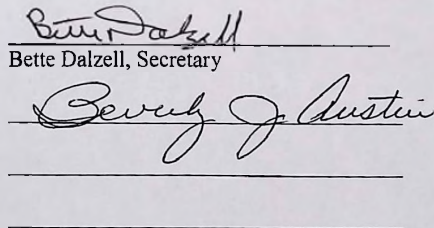 Bette Dalzell
Bette Dalzell, Secretary
Beverly J. Austin